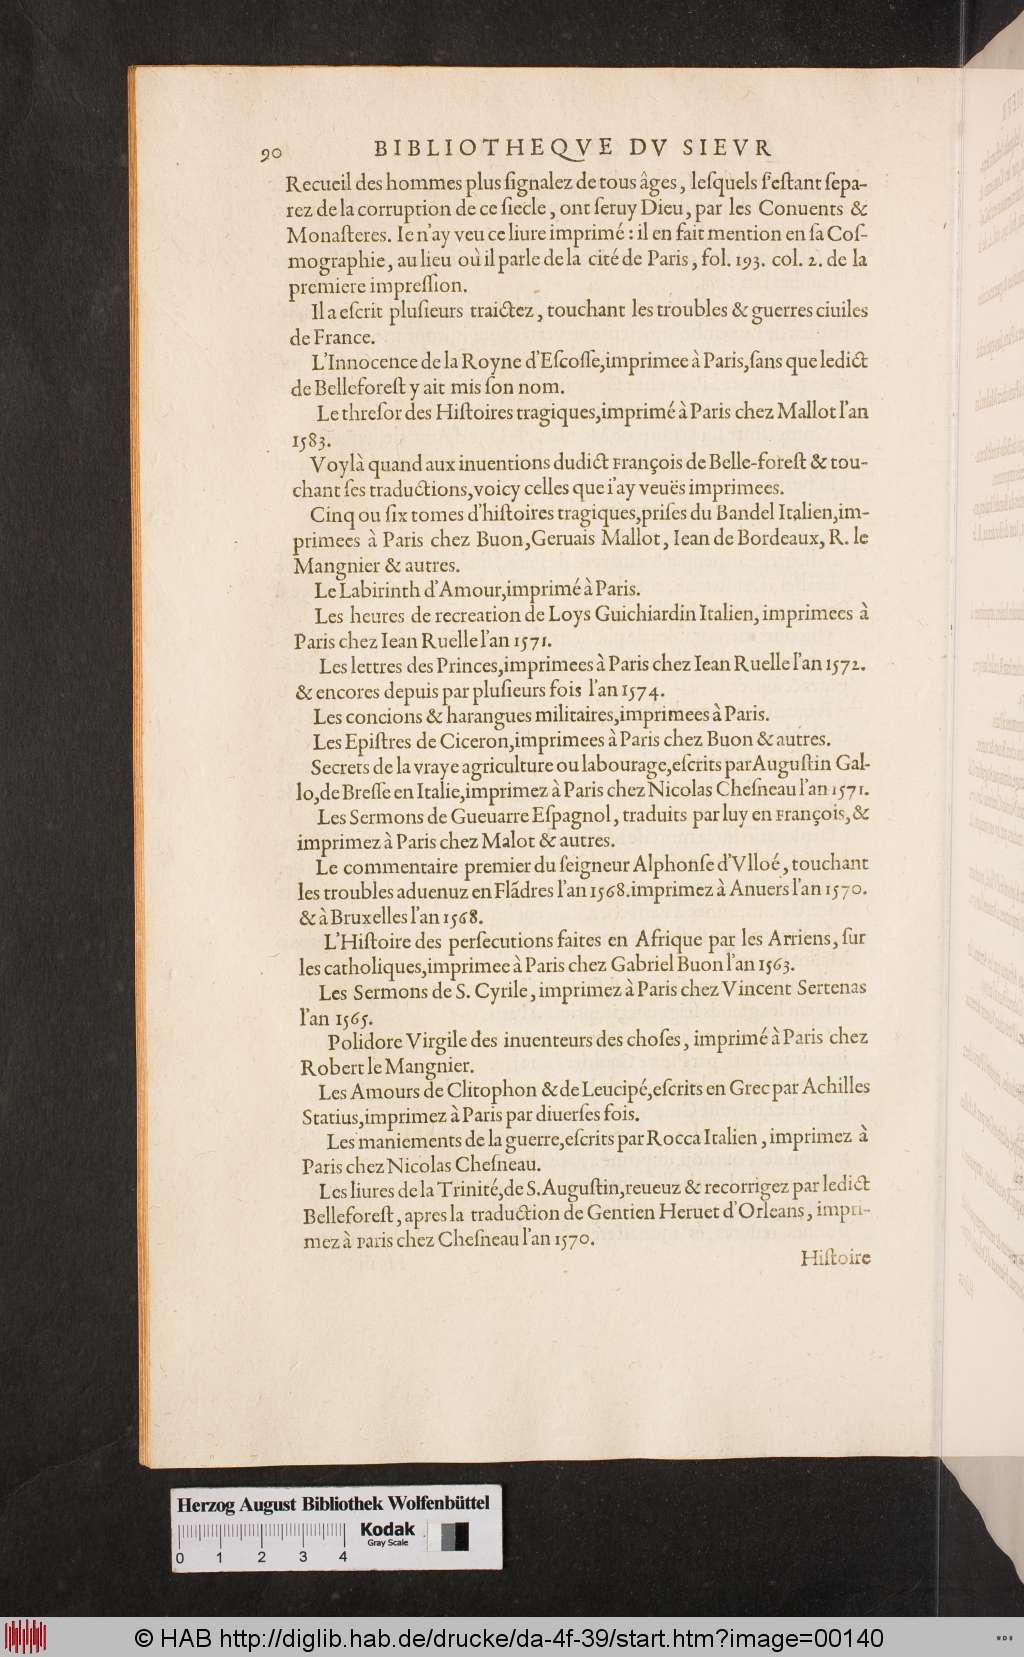 90 BIBLIOTHEQVE DV SIEVR
Recueil des hommes plus ſignalez de tous âges, leſquels ſ'eſtant ſepa-
rez de la corruption de ce ſiecle, ont ſeruy Dieu, par les Conuents &
Monaſteres. Ie n'ay veu ce liure imprimé : il en fait mention en ſa Coſ-
mographie, au lieu où il parle de la cité de Paris, fol. 193. col. 2. de la
premiere impreſſion.
Il a eſcrit pluſieurs traictez, touchant les troubles & guerres ciuiles
de France.
L'Innocence de la Royne d'Eſcoſſe,imprimee à Paris,ſans que ledict
de Belleforeſt y ait mis ſon nom.
Le threſor des Hiſtoires tragiques,imprimé à Paris chez Mallot l'an
1583.
Voylà quand aux inuentions dudict François de Belle-foreſt & tou-
chant ſes traductions,voicy celles que i'ay veuës imprimees.
Cinq ou ſix tomes d'hiſtoires tragiques,priſes du Bandel Italien,im-
primees à Paris chez Buon,Geruais Mallot, Iean de Bordeaux, R. le
Mangnier & autres.
Le Labirinth d'Amour,imprimé à Paris.
Les heures de recreation de Loys Guichiardin Italien, imprimees à
Paris chez Iean Ruelle l'an 1571.
Les lettres des Princes,imprimees à Paris chez Iean Ruelle l'an 1572.
& encores depuis par pluſieurs fois l'an 1574.
Les concions & harangues militaires,imprimees à Paris.
Les Epiſtres de Ciceron,imprimees à Paris chez Buon & autres.
Secrets de la vraye agriculture ou labourage,eſcrits par Auguſtin Gal-
lo,de Breſſe en Italie,imprimez à Paris chez Nicolas Cheſneau l'an 1571.
Les Sermons de Gueuarre Eſpagnol, traduits par luy en François, &
imprimez à Paris chez Malot & autres.
Le commentaire premier du ſeigneur Alphonſe d'Vlloé, touchant
les troubles aduenuz en Flãdres l'an 1568.imprimez à Anuers l'an 1570.
& à Bruxelles l'an 1568.
L'Hiſtoire des perſecutions faites en Afrique par les Arriens, ſur
les catholiques,imprimee à Paris chez Gabriel Buon l'an 1563.
Les Sermons de S. Cyrile, imprimez à Paris chez Vincent Sertenas
l'an 1565.
Polidore Virgile des inuenteurs des choſes, imprimé à Paris chez
Robert le Mangnier.
Les Amours de Clitophon & de Leucipé,eſcrits en Grec par Achilles
Statius,imprimez à Paris par diuerſes fois.
Les maniements de la guerre,eſcrits par Rocca Italien, imprimez à
Paris chez Nicolas Cheſneau.
Les liures de la Trinité,de S. Auguſtin,reueuz & recorrigez par ledict
Belleforeſt, apres la traduction de Gentien Heruet d'Orleans, impri-
mez à Paris chez Cheſneau l'an 1570.
Hiſtoire
Herzog August Bibliothek Wolfenbüttel
Kodak
Gray Scale
0 1 2 3 4
© HAB http://diglib.hab.de/drucke/da-4f-39/start.htm?image=00140